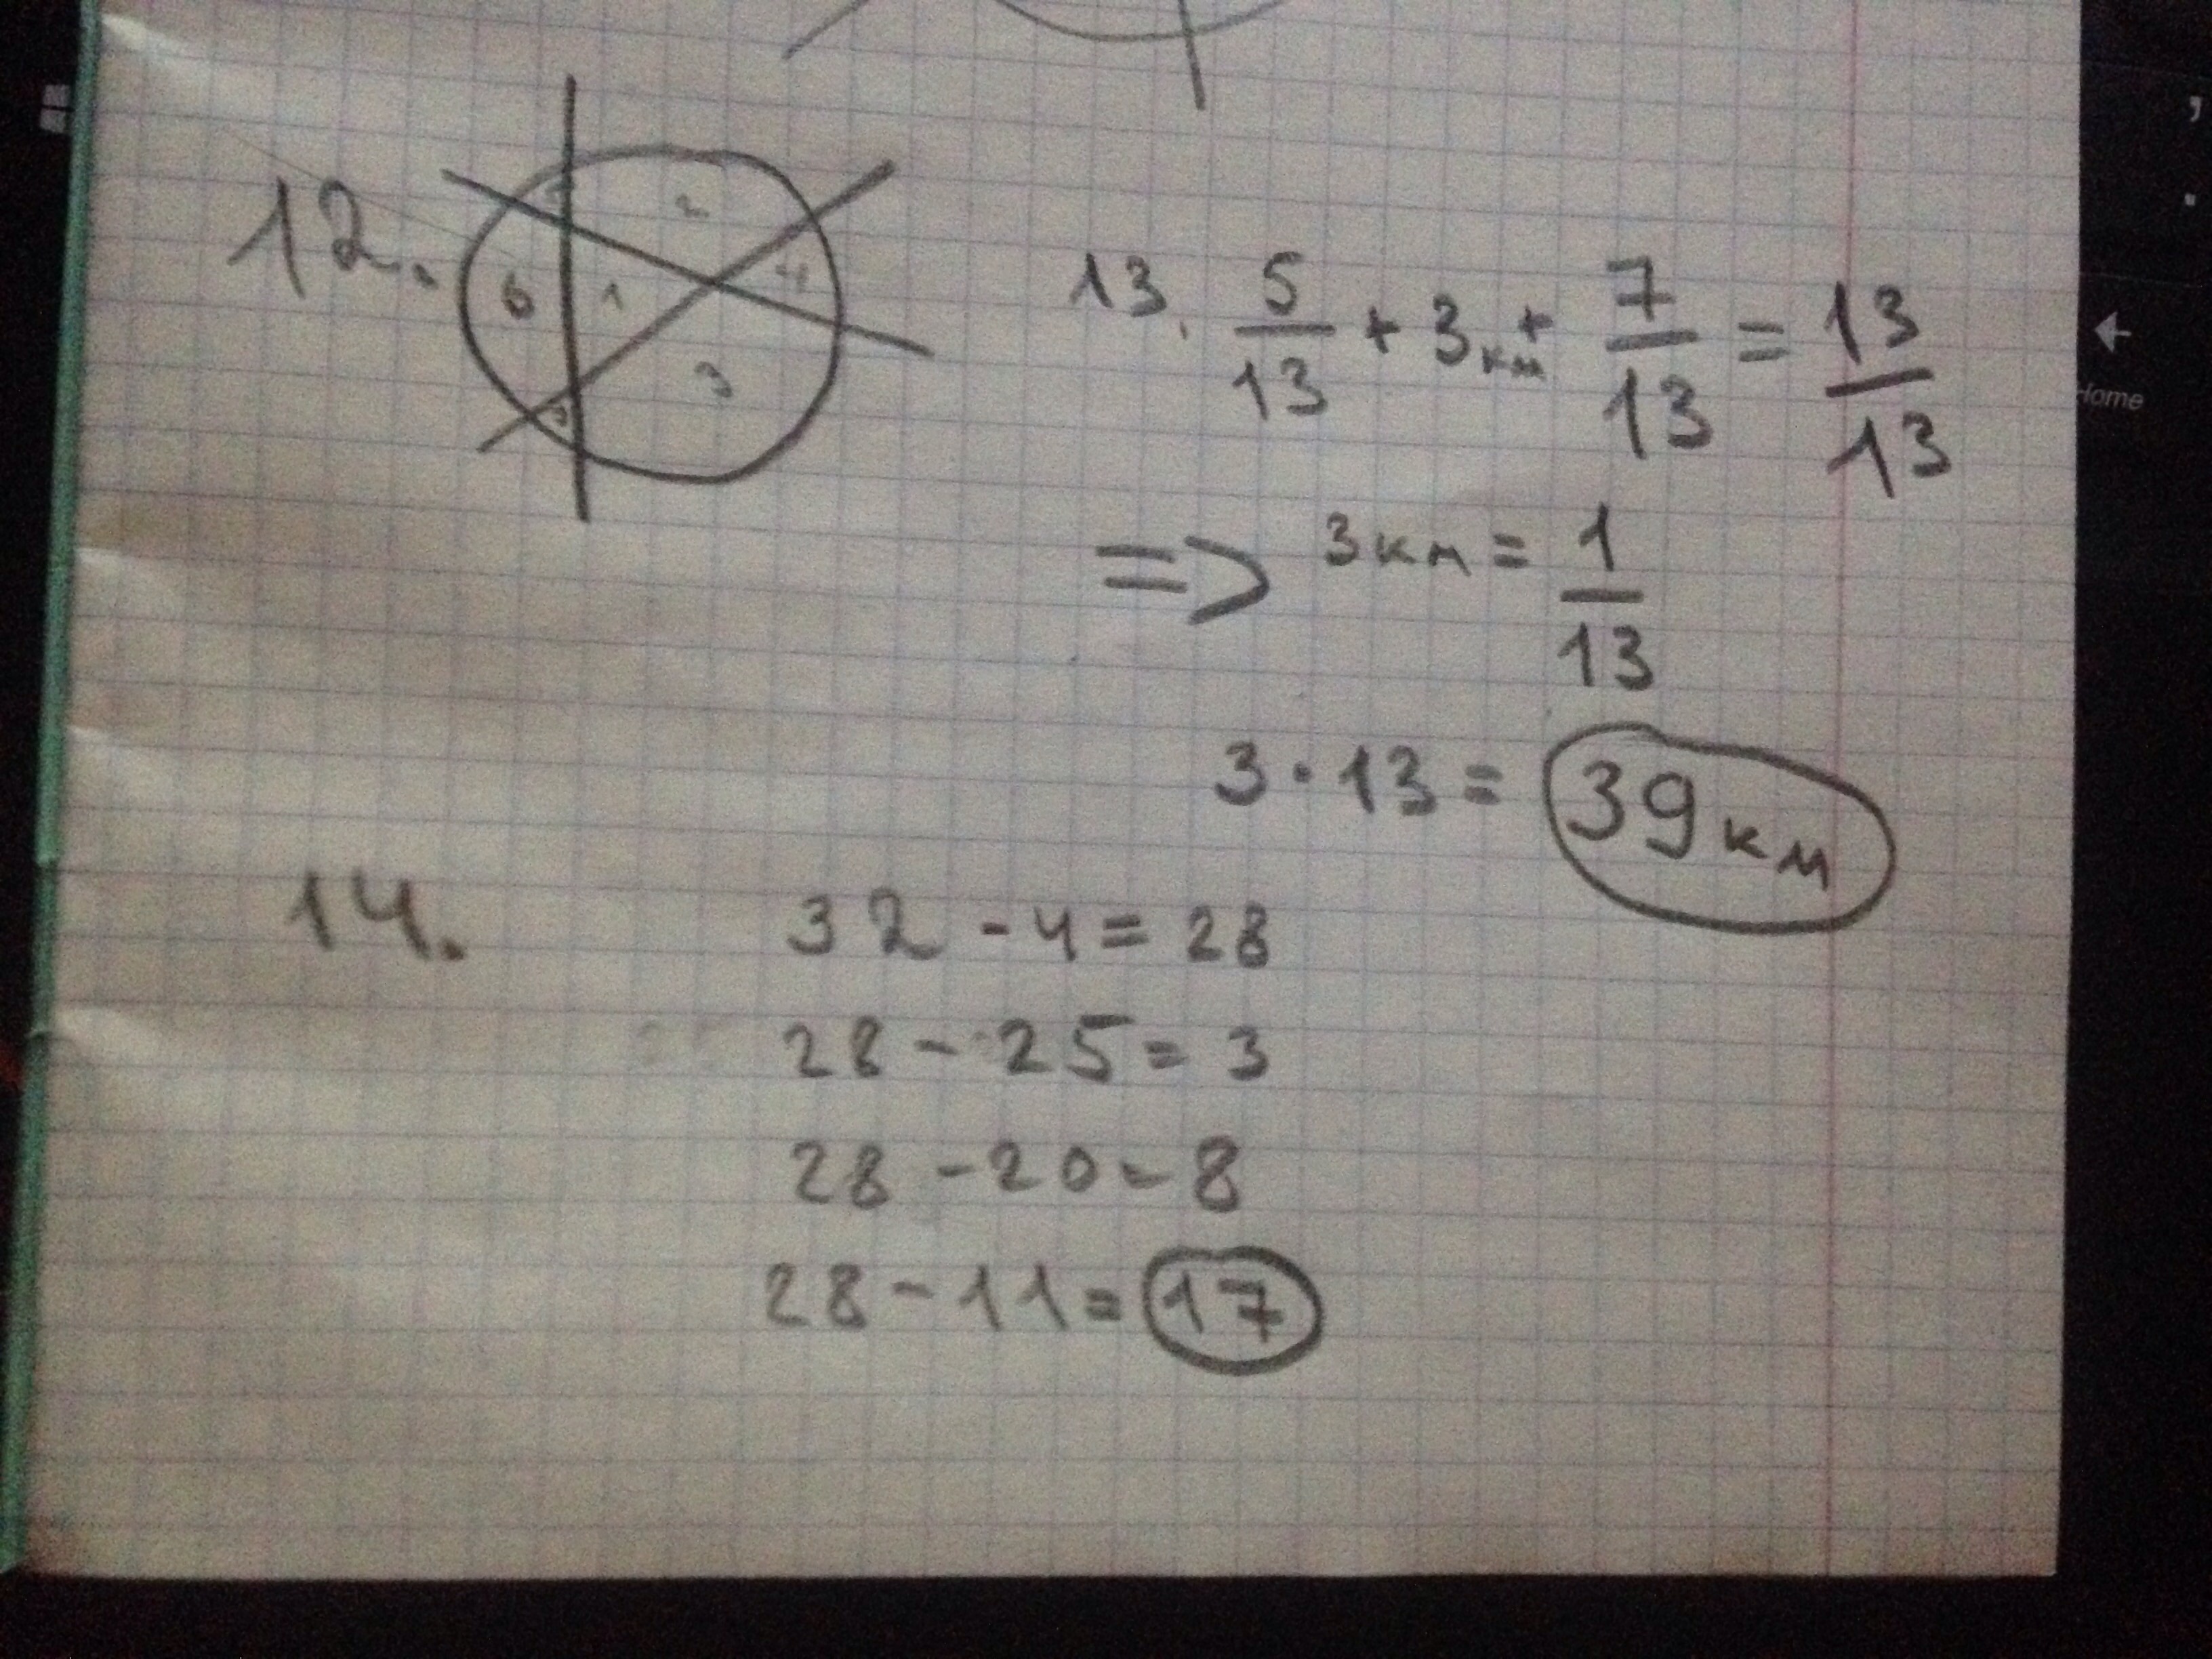 12.
5 2
6 1 4
3
7
13. 5/13 + 3км + 7/13 = 13/13
=> 3км = 1/13
3 · 13 = 39км
14.
32 - 4 = 28
28 - 25 = 3
28 - 20 = 8
28 - 11 = 17
Home